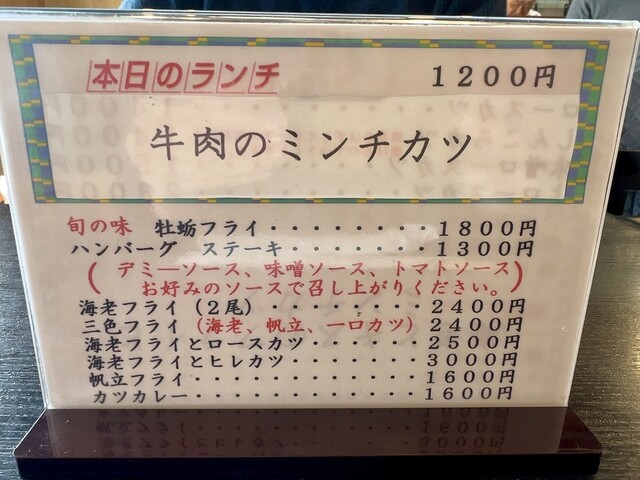 本日のランチ　１２００円
牛肉のミンチカツ
旬の味　牡蛎フライ・・・・・・・１８００円
ハンバーグ　ステーキ・・・・・・１３００円
（デミ―ソース、味噌ソース、トマトソース
お好みのソースで召し上がりください。）
海老フライ（２尾）・・・・・・・２４００円
三色フライ（海老、帆立、一口カツ）２４００円
海老フライとロースカツ・・・・・２５００円
海老フライとヒレカツ・・・・・・３０００円
帆立フライ・・・・・・・・・・・１６００円
カツカレー・・・・・・・・・・・１６００円